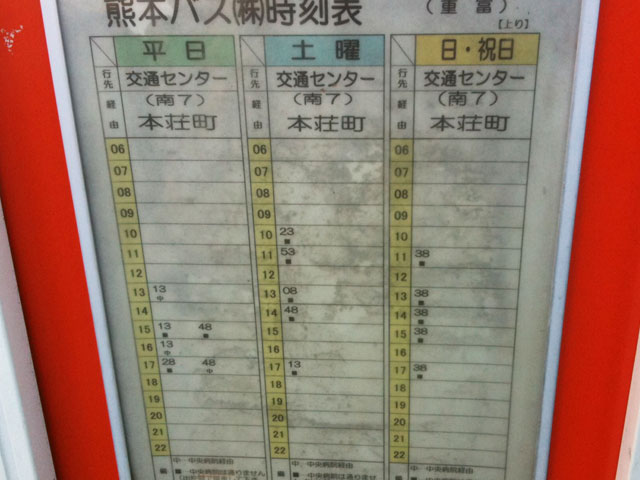 熊本バス㈱時刻表
(重富)
[上り]
平日 土曜 日・祝日
行先 交通センター 行先 交通センター 行先 交通センター
経由 (南7) 経由 (南7) 経由 (南7)
本荘町 本荘町 本荘町
06 06 06
07 07 07
08 08 08
09 09 09
10 10 23 ■ 10
11 11 53 ■ 11 38 ■
12 12 12
13 13 中 13 08 ■ 13 38 ■
14 14 48 ■ 14 38 ■
15 13 ■ 48 ■ 15 15 38 ■
16 13 中 16 16
17 28 ■ 48 中 17 13 ■ 17 38 ■
18 18 18
19 19 19
20 20 20
21 21 21
22 22 22
中…中央病院経由 中…中央病院経由 中…中央病院経由
■…中央病院は通りません ■…中央病院は通りませ ■…中央病院は通りませ